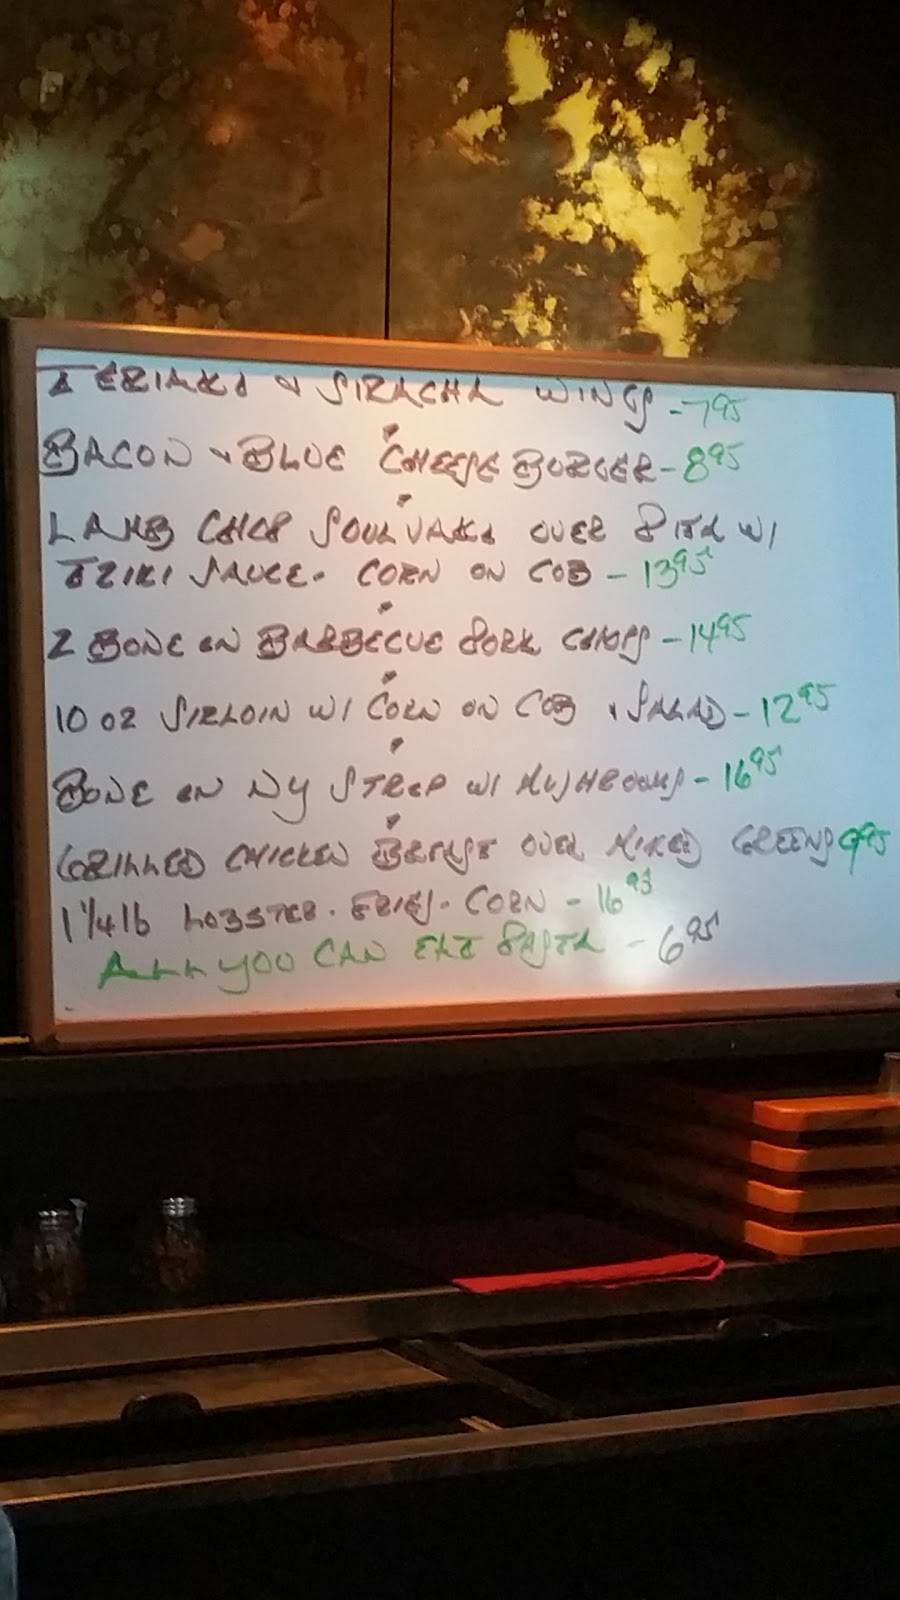 TERIAKI & SIRACHA WINGS - 7 95
BACON & BLUE CHEESE BURGER - 8 95
LAMB CHOP SOUVLAKI OVER PITA W/
TZIKI SAUCE. CORN ON COB - 13 95
2 BONE IN BARBECUE PORK CHOPS - 14 95
10 OZ SIRLOIN W/ CORN ON COB & SALAD - 12 95
BONE IN NY STRIP W/ MUSHROOMS - 16 95
GRILLED CHICKEN BREAST OVER MIXED GREENS 9 95
1 1/4 lb LOBSTER. FRIES. CORN - 16 95
ALL YOU CAN EAT PASTA - 6 95